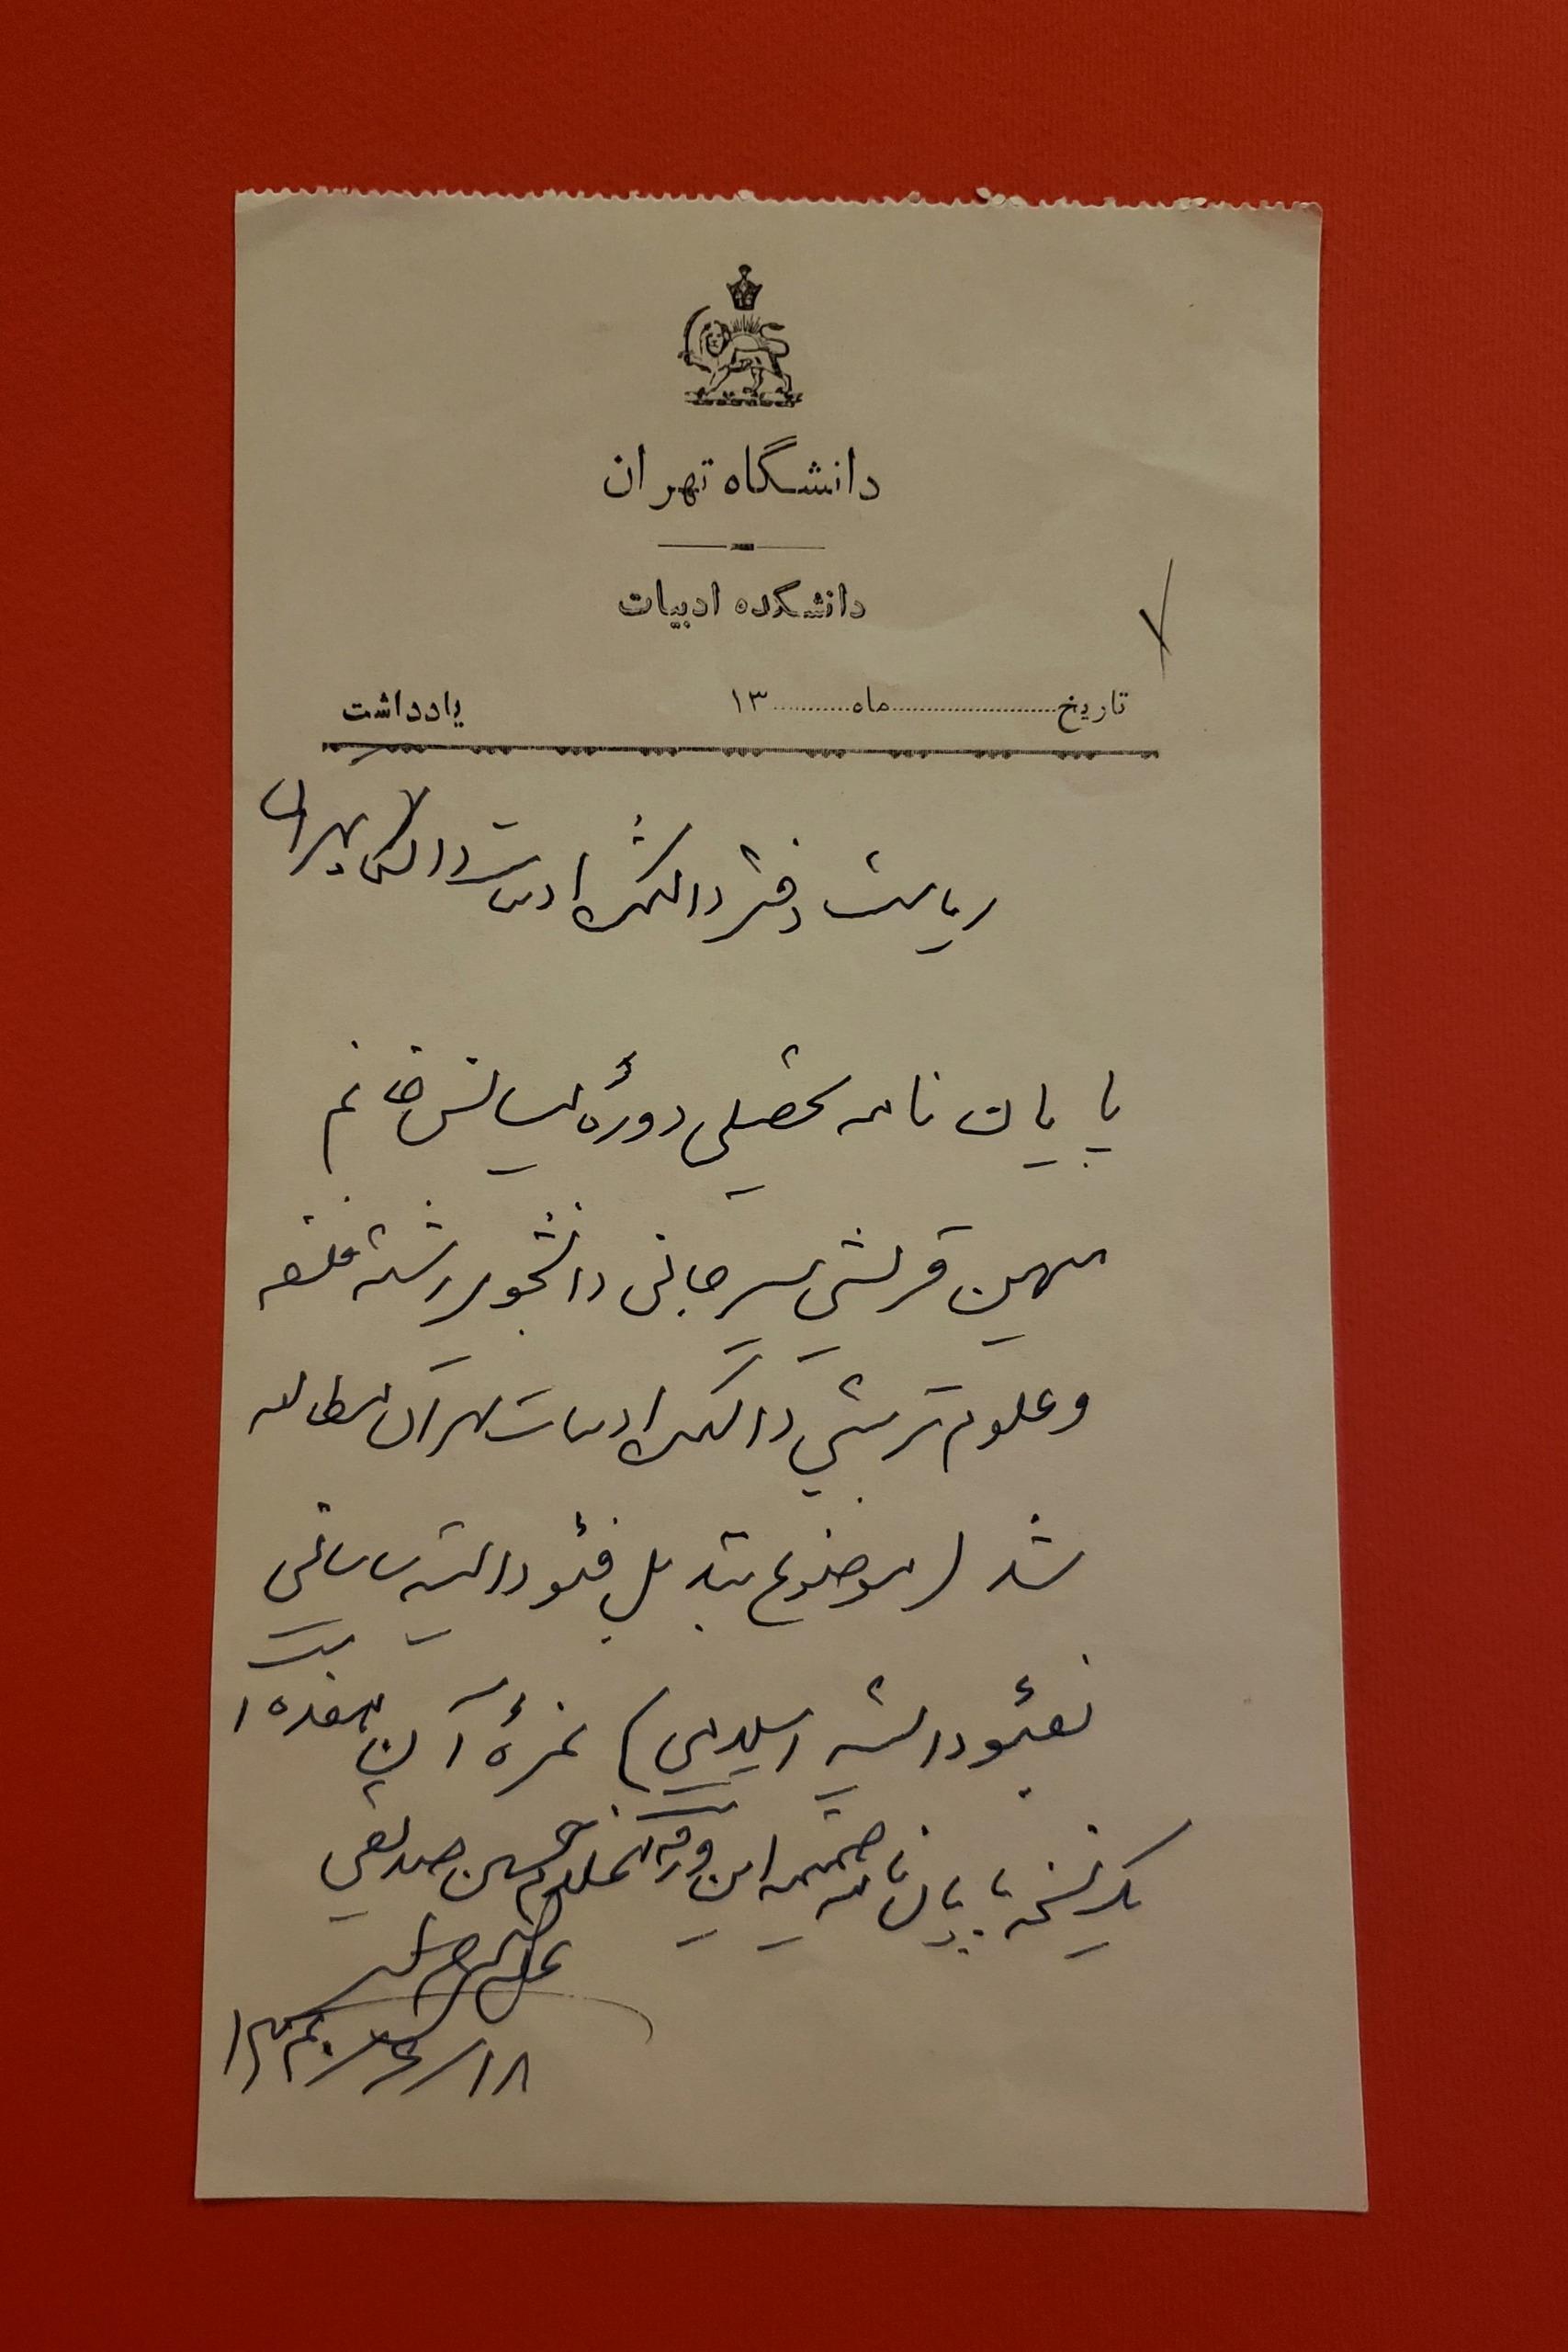 دانشگاه تهران
دانشکده ادبیات
تاریخ ماه ۱۳
یادداشت
ریاست دفتر دانشکده ادبیات دانشگاه تهران
پایان نامه تحصیلی دورهٔ لیسانس خانم
مهین قرشی سیرجانی دانشجوی رشته فلسفه
و علوم تربیتی دانشکده ادبیات تهران مطالعه
شد (موضوع تبدیل فئودالیته ساسانی
بفئودالیته اسلامی) نمرهٔ آن هفده است
یک نسخه پایان نامه ضمیمه این ورقه است غلامحسین صدیقی